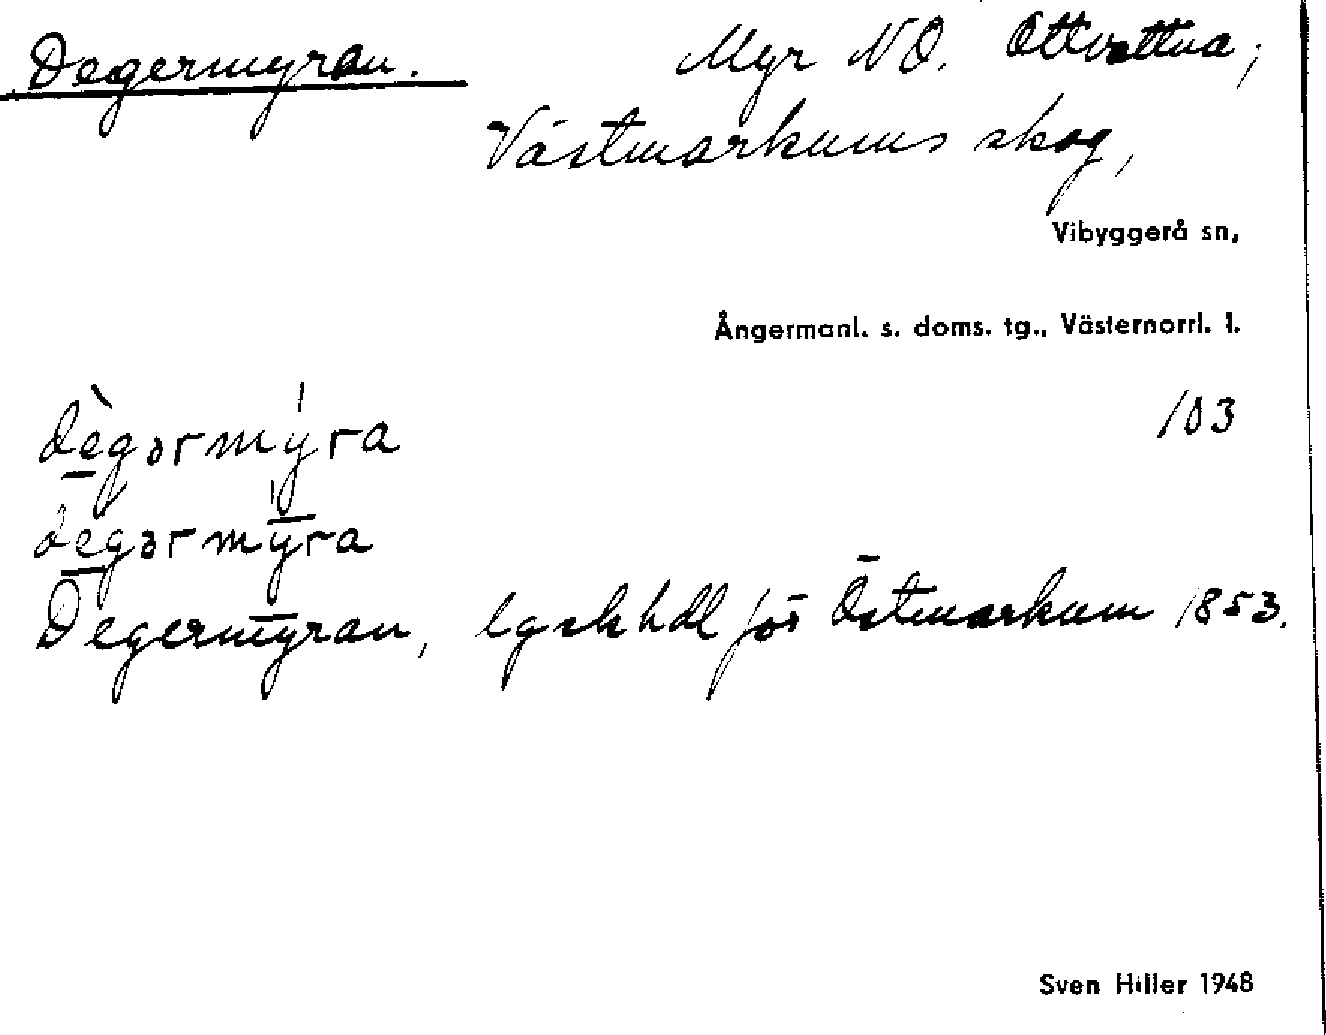 Degermyran. Myr NO. Ottvattna,
Västmarkums skog,
Vibyggerå sn,
Ångermanl. s. doms. tg., Västernorrl. l.
103
dègərmýra
degərmyra
Degermyran, lgskhdl för Östmarkum 1853.
Sven Hiller 1948